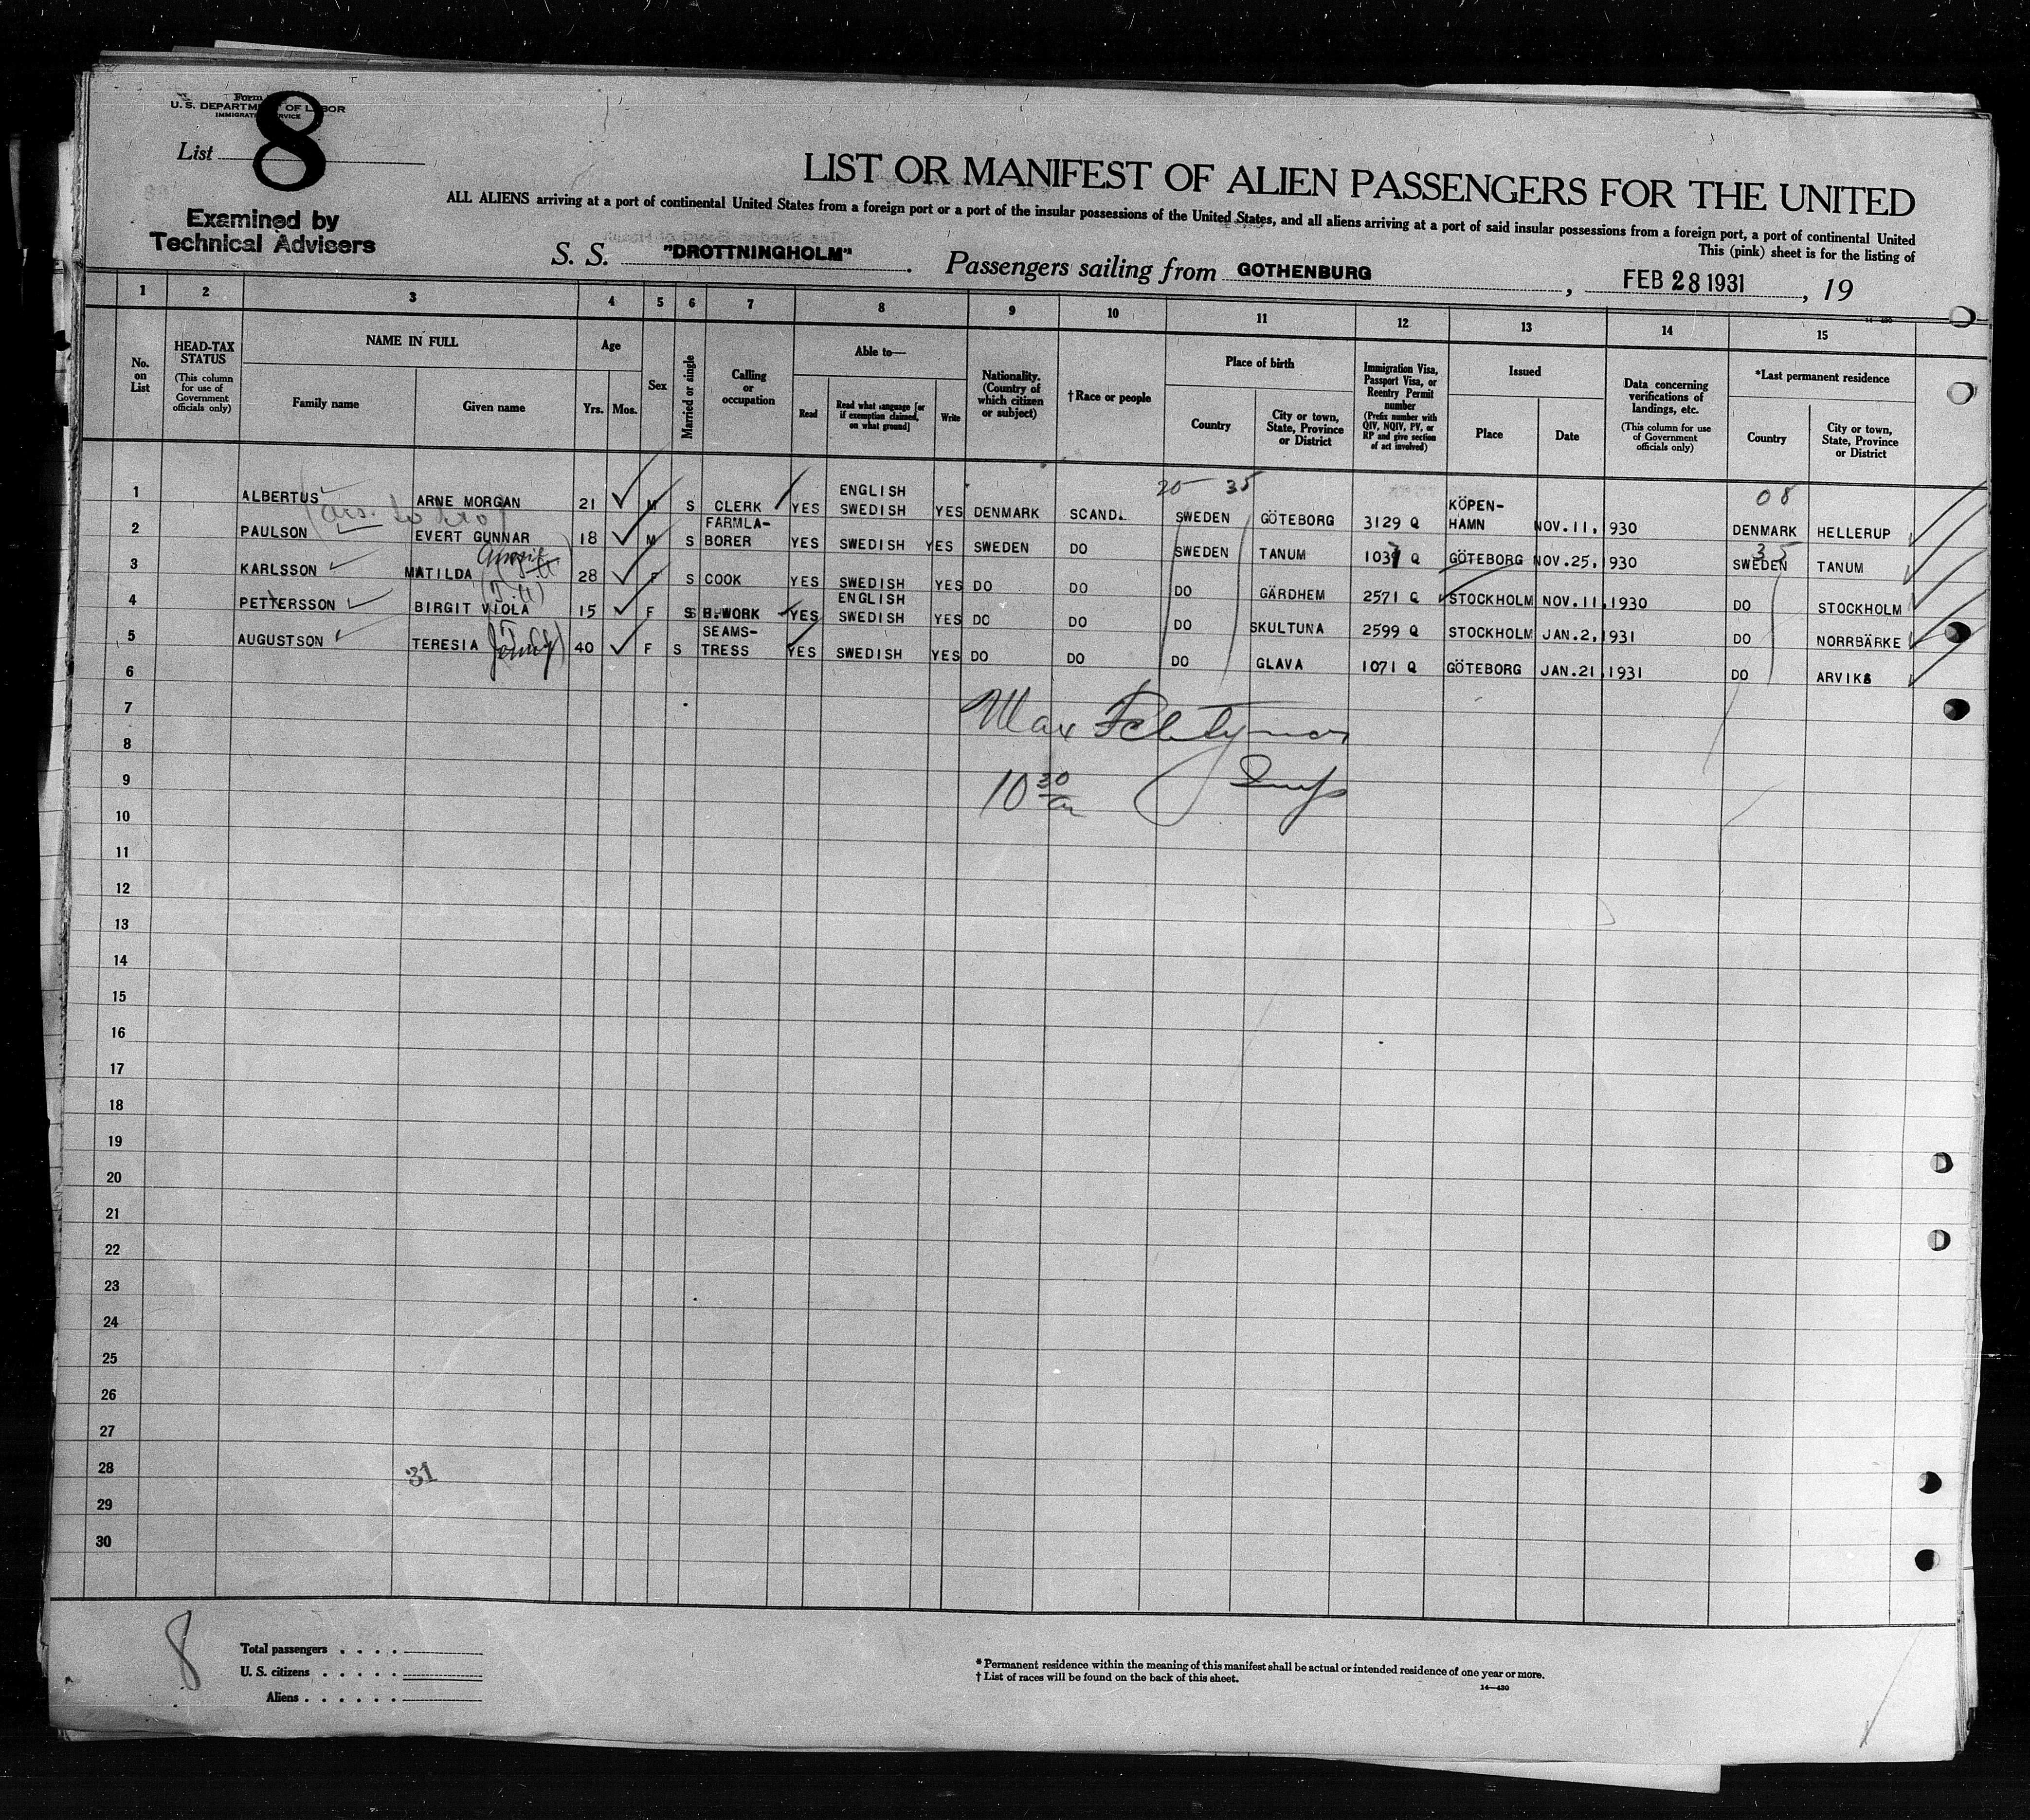 Form
U. S. DEPARTMENT OF LABOR
IMMIGRATION SERVICE
List 8
Examined by
Technical Advisers
LIST OR MANIFEST OF ALIEN PASSENGERS FOR THE UNITED
ALL ALIENS arriving at a port of continental United States from a foreign port or a port of the insular possessions of the United States, and all aliens arriving at a port of said insular possessions from a foreign port, a port of continental United
This (pink) sheet is for the listing of
S. S. "DROTTNINGHOLM". Passengers sailing from GOTHENBURG, FEB 28 1931, 19
1 2 3 4 5 6 7 8 9 10 11 12 13 14 15
No. on List
HEAD-TAX STATUS
(This column for use of Government officials only)
NAME IN FULL
Family name
Given name
Age
Yrs. Mos.
Sex
Married or single
Calling or occupation
Able to—
Read
Read what language [or if exemption claimed, on what ground]
Write
Nationality. (Country of which citizen or subject)
†Race or people
Place of birth
Country
City or town, State, Province or District
Immigration Visa, Passport Visa, or Reentry Permit number
(Prefix number with QIV, NQIV, PV, or RP and give section of act involved)
Issued
Place
Date
Data concerning verifications of landings, etc.
(This column for use of Government officials only)
*Last permanent residence
Country
City or town, State, Province or District
20 35 08
1 ALBERTUS ARNE MORGAN 21 M S CLERK YES ENGLISH SWEDISH YES DENMARK SCAND. SWEDEN GÖTEBORG 3129 Q KÖPEN-HAMN NOV.11, 1930 DENMARK HELLERUP
2 PAULSON EVERT GUNNAR 18 M S FARMLA-BORER YES SWEDISH YES SWEDEN DO SWEDEN TANUM 1037 Q GÖTEBORG NOV.25, 1930 35 SWEDEN TANUM
3 KARLSSON MATILDA 28 F S COOK YES SWEDISH YES DO DO DO GÄRDHEM 2571 Q STOCKHOLM NOV.11, 1930 DO STOCKHOLM
4 PETTERSSON BIRGIT VIOLA 15 F S H.WORK YES ENGLISH SWEDISH YES DO DO DO SKULTUNA 2599 Q STOCKHOLM JAN.2, 1931 DO NORRBÄRKE
5 AUGUSTSON TERESIA 40 F S SEAMS-TRESS YES SWEDISH YES DO DO DO GLAVA 1071 Q GÖTEBORG JAN.21, 1931 DO ARVIKA
6
7 Max
8
9 10 30
10
11
12
13
14
15
16
17
18
19
20
21
22
23
24
25
26
27
28 31
29
30
8
Total passengers . . . .
U. S. citizens . . . . .
Aliens . . . . . .
* Permanent residence within the meaning of this manifest shall be actual or intended residence of one year or more.
† List of races will be found on the back of this sheet.
14—430